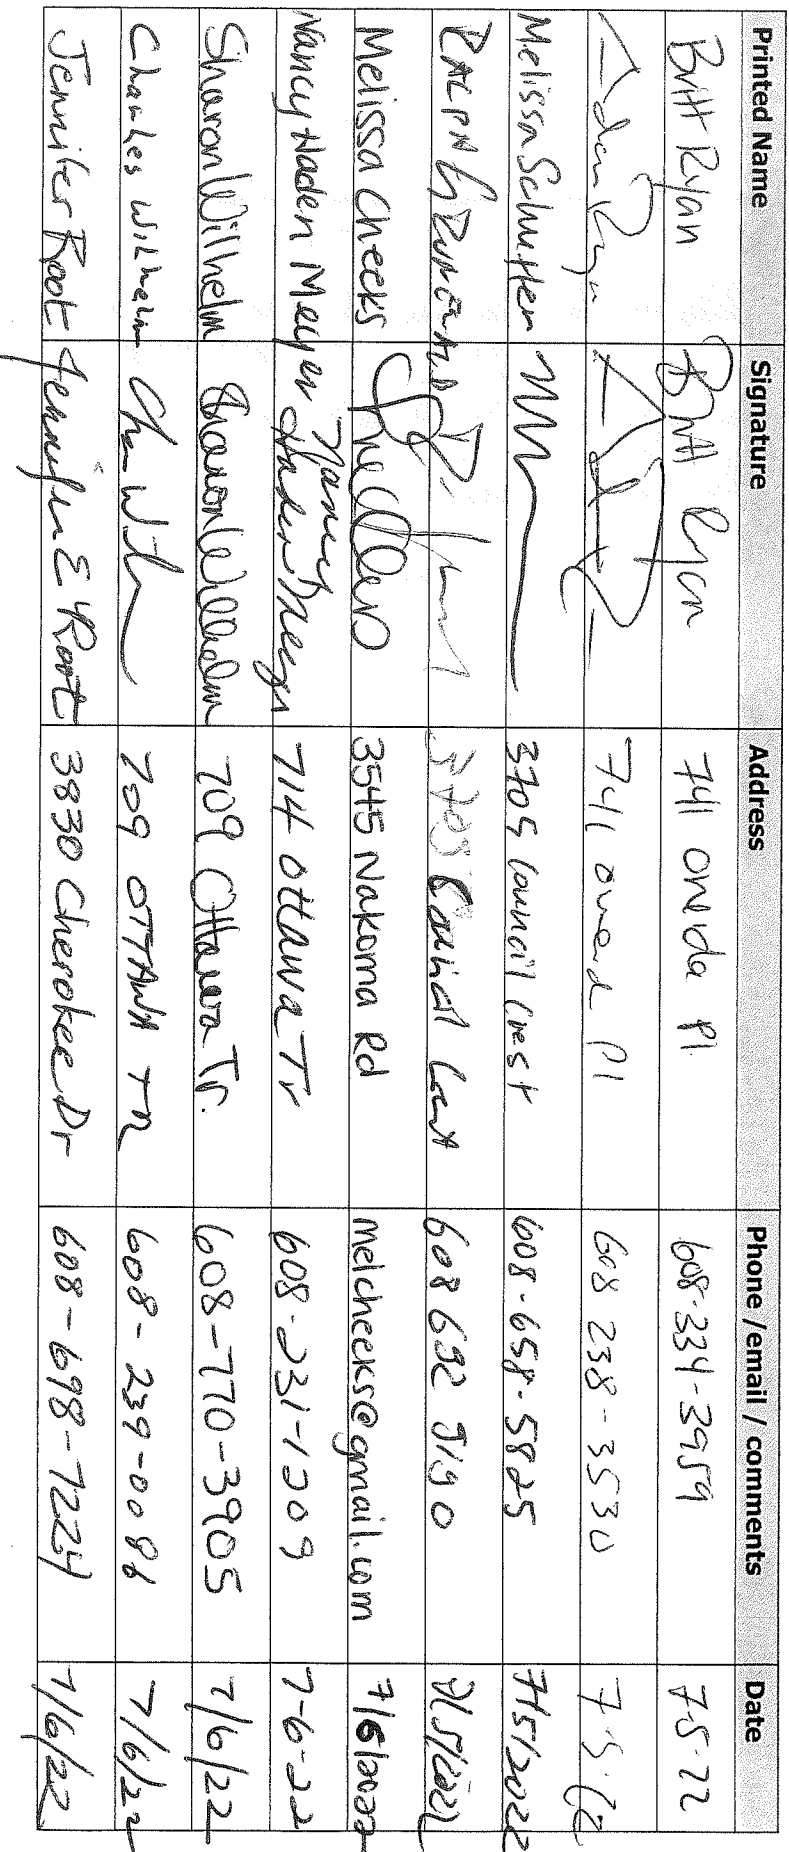 Printed Name Signature Address Phone /email / comments Date
Britt Ryan Britt Ryan 741 Oneida Pl. 608-334-3959 7-5-22
Adam Ryan 741 Pl 608 238-3530 7-5-22
Melissa 3705 Council Crest 608-658-5825 7/5/2022
RALPH 3705 Council Crest 608 692
Melissa Cheeks 3545 Nakoma Rd melcheeks@gmail.com 7/6/2022
Nancy Haden Meyer Nancy Haden Meyer 714 Ottawa Tr 608-231-1209 7-6-22
Sharon Wilhelm Sharon Wilhelm 709 Ottawa Tr. 608-770-3905 7/6/22
Charles Wilhelm 709 OTTAWA TR 608-239-0086 7/6/22
Jennifer Root Jennifer E Root 3830 Cherokee Dr 608-698-7224 7/6/22